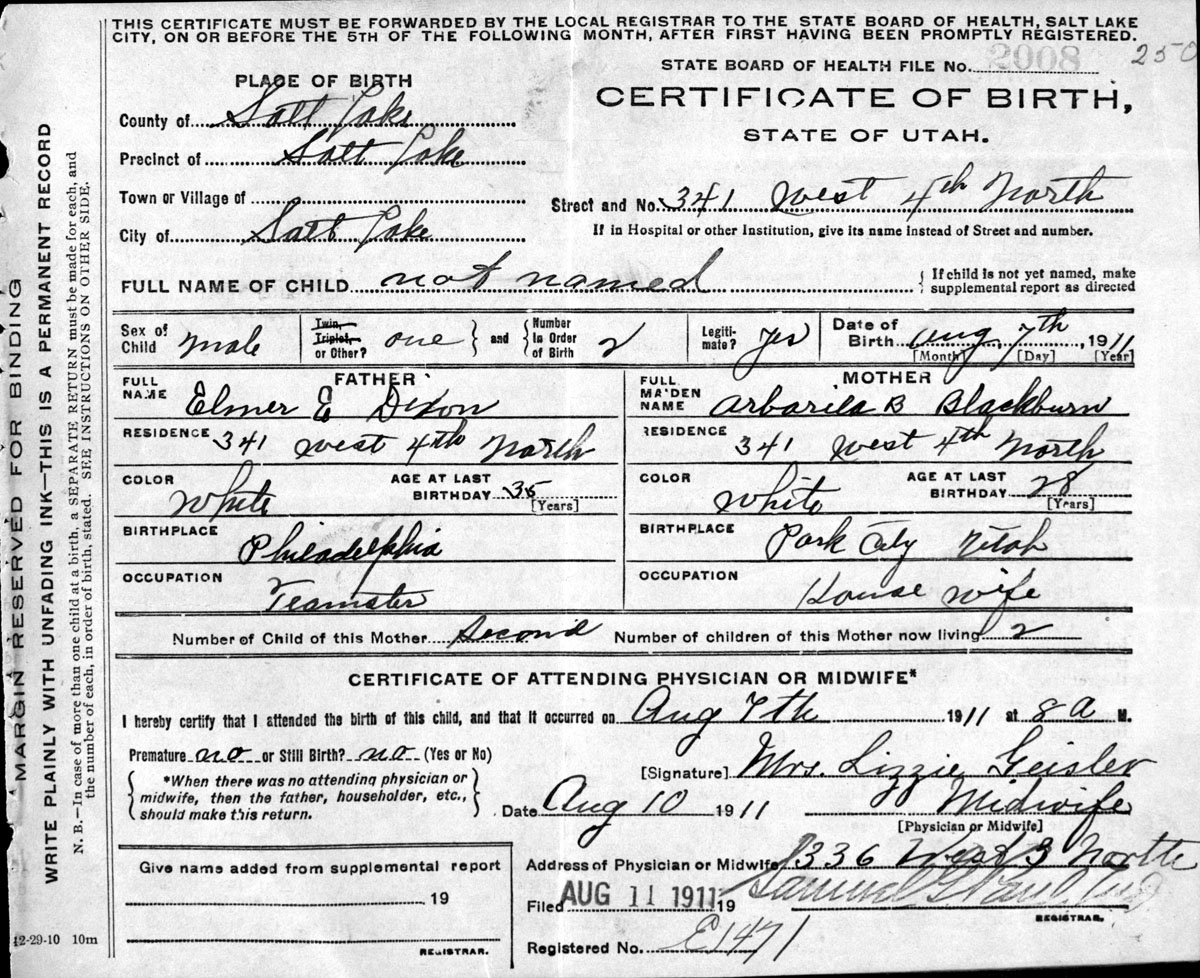 THIS CERTIFICATE MUST BE FORWARDED BY THE LOCAL REGISTRAR TO THE STATE BOARD OF HEALTH, SALT LAKE
CITY, ON OR BEFORE THE 5TH OF THE FOLLOWING MONTH, AFTER FIRST HAVING BEEN PROMPTLY REGISTERED.
250
STATE BOARD OF HEALTH FILE No. 2008
CERTIFICATE OF BIRTH,
STATE OF UTAH.
PLACE OF BIRTH
County of Salt Lake
Precinct of Salt Lake
Town or Village of
City of Salt Lake
Street and No. 341 West 4th North
If in Hospital or other Institution, give its name instead of Street and number.
FULL NAME OF CHILD not named
If child is not yet named, make
supplemental report as directed
Sex of
Child Male
Twin,
Triplet,
or Other? one
and
Number
in Order
of Birth 2
Legiti-
mate? Yes
Date of
Birth Aug 7th 1911
[Month] [Day] [Year]
FATHER
FULL
NAME Elmer E Dixon
RESIDENCE 341 West 4th North
COLOR White
AGE AT LAST
BIRTHDAY 35
[Years]
BIRTHPLACE Philadelphia
OCCUPATION Teamster
MOTHER
FULL
MAIDEN
NAME B Blackburn
RESIDENCE 341 West 4th North
COLOR White
AGE AT LAST
BIRTHDAY 28
[Years]
BIRTHPLACE Park City Utah
OCCUPATION House wife
Number of Child of this Mother Second Number of children of this Mother now living 2
CERTIFICATE OF ATTENDING PHYSICIAN OR MIDWIFE*
I hereby certify that I attended the birth of this child, and that it occurred on Aug 7th 1911 at 8 a M.
Premature no or Still Birth? no (Yes or No)
*When there was no attending physician or
midwife, then the father, householder, etc.,
should make this return.
[Signature] Mrs. Lizzie Geisler
Date Aug 10 1911 Midwife
[Physician or Midwife]
Give name added from supplemental report
19
REGISTRAR.
Address of Physician or Midwife 1336 West 3 North
Filed AUG 11 1911 19 Samuel G
REGISTRAR.
Registered No. E1471
MARGIN RESERVED FOR BINDING
WRITE PLAINLY WITH UNFADING INK—THIS IS A PERMANENT RECORD
N. B.—In case of more than one child at a birth, a SEPARATE RETURN must be made for each, and
the number of each, in order of birth, stated. SEE INSTRUCTONS ON OTHER SIDE.
12-29-10 10m